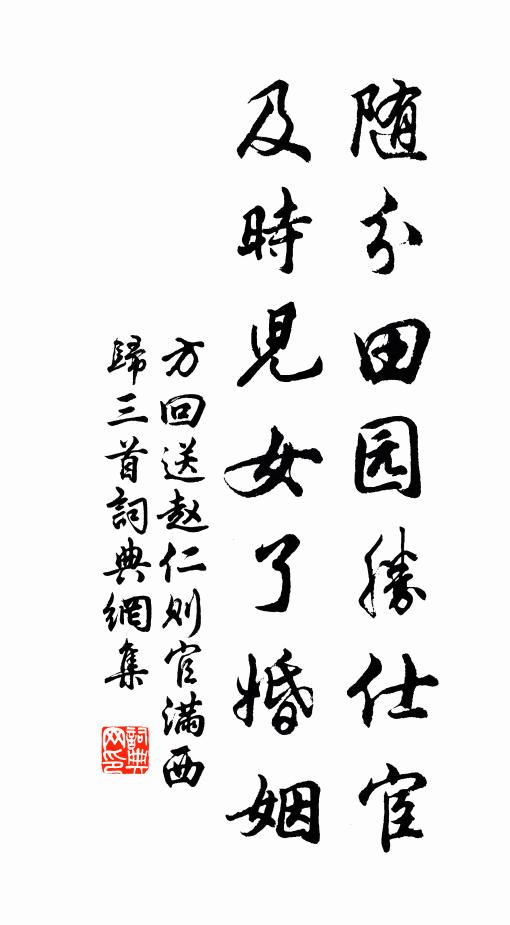 随分田园勝仕宦
及時児女了婚姻
方回送赵仁则官满西
歸三首詞典網集
詞典
网印